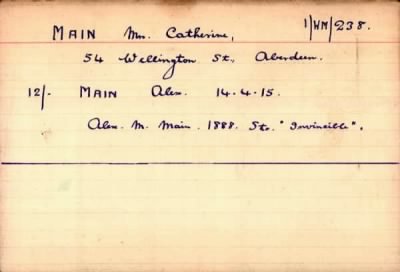 MAIN Mrs. Catherine, 1/WM/238.
54 Wellington St., Aberdeen.
12/- MAIN Alex. 14.4.15.
Alex. M. Main. 1888. Sto. "Invincible".